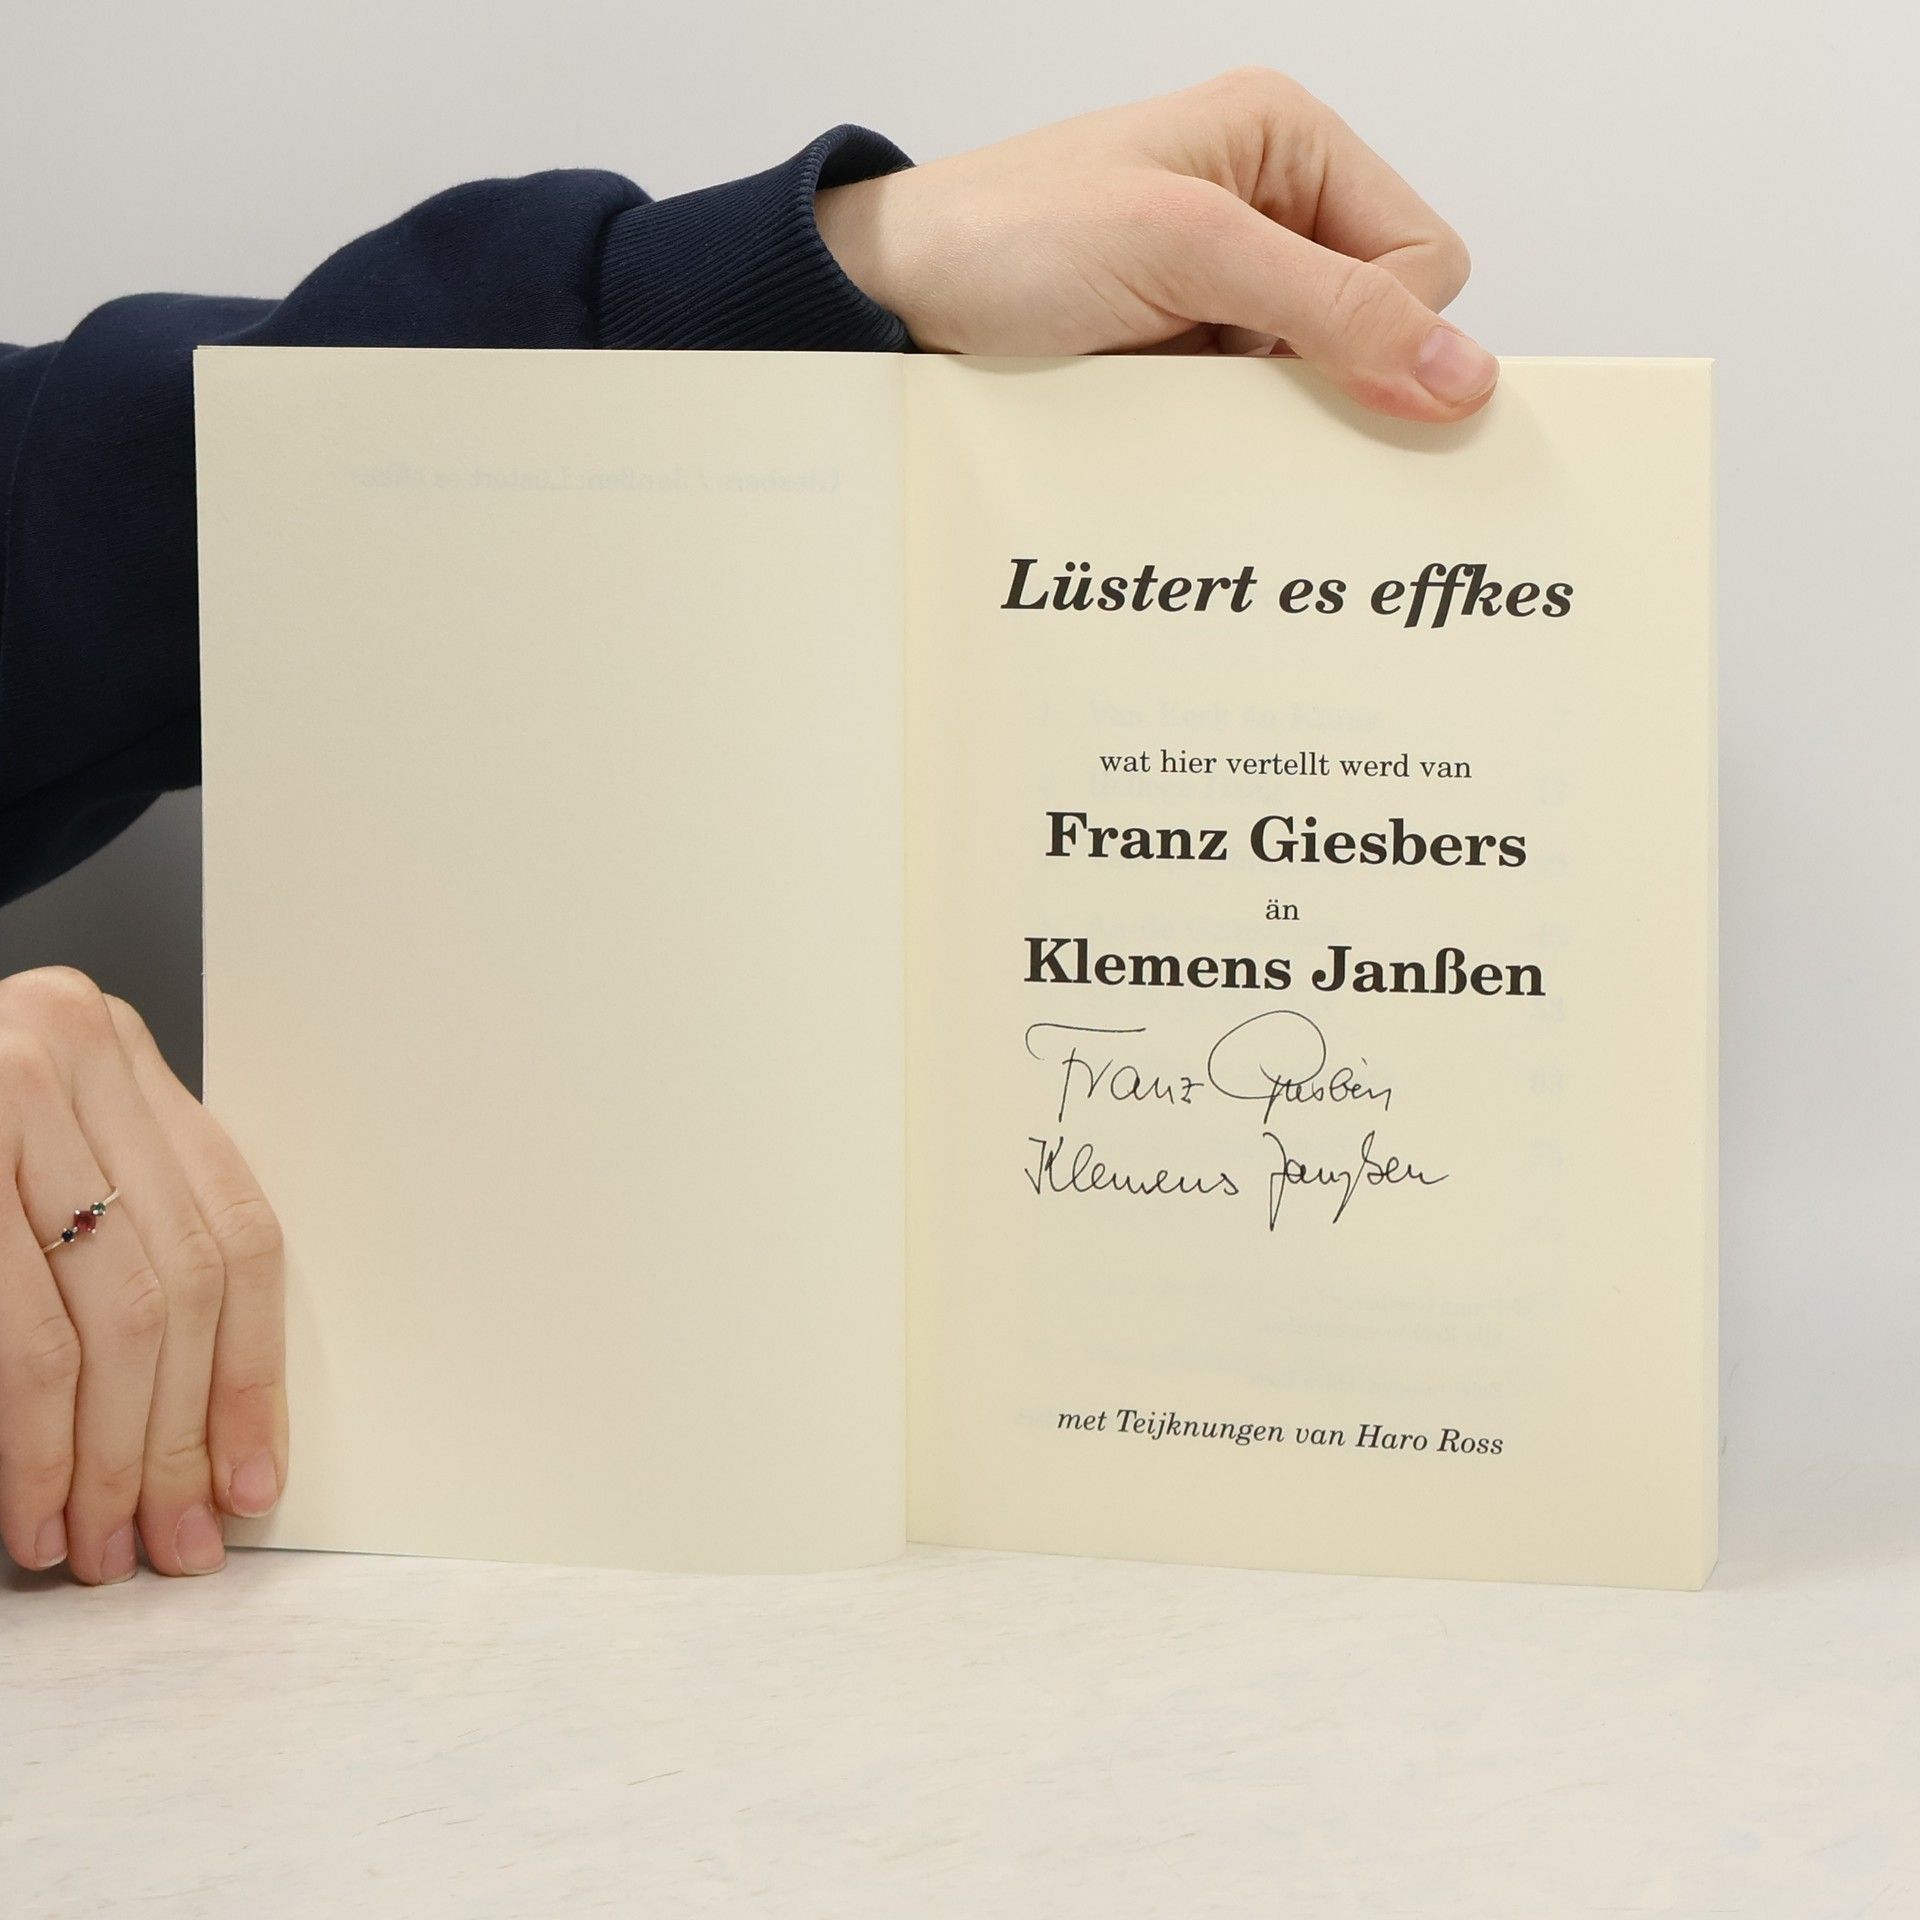 Lüstert es effkes
wat hier vertellt werd van
Franz Giesbers
än
Klemens Janßen
Franz Giesbers
Klemens Janßen
met Teijknungen van Haro Ross